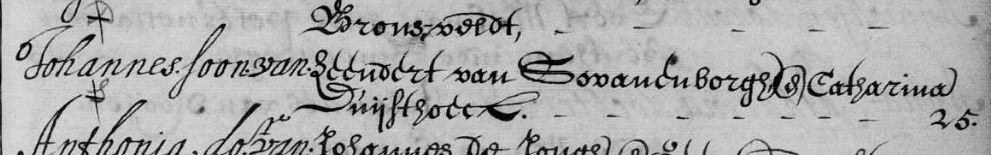 Bronsveldt, - - - - -
Johannes soon van Leendert van Sovanenborgh (&) Catharina
Duijfhoeck. - - - - - - - 25.
Anthonia. do.r van Johannes de Jongh